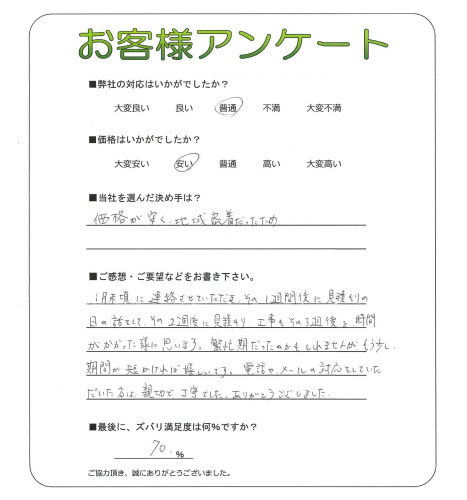 お客様アンケート
■弊社の対応はいかがでしたか？
大変良い 良い 普通 不満 大変不満
■価格はいかがでしたか？
大変安い 安い 普通 高い 大変高い
■当社を選んだ決め手は？
価格が安く、地域密着だったため
■ご感想・ご要望などをお書き下さい。
1月末頃に連絡させていただき、その1週間後に見積りの
日の話をして、その2週後に見積り、工事もその3週後と、時間
がかかった様に思います。繁忙期だったのかもしれませんがもう少し
期間が短かければ嬉しいです。電話や、メールの対応をしていた
だいた方は、親切で丁寧でした。ありがとうございました。
■最後に、ズバリ満足度は何%ですか？
70. %
ご協力頂き、誠にありがとうございました。